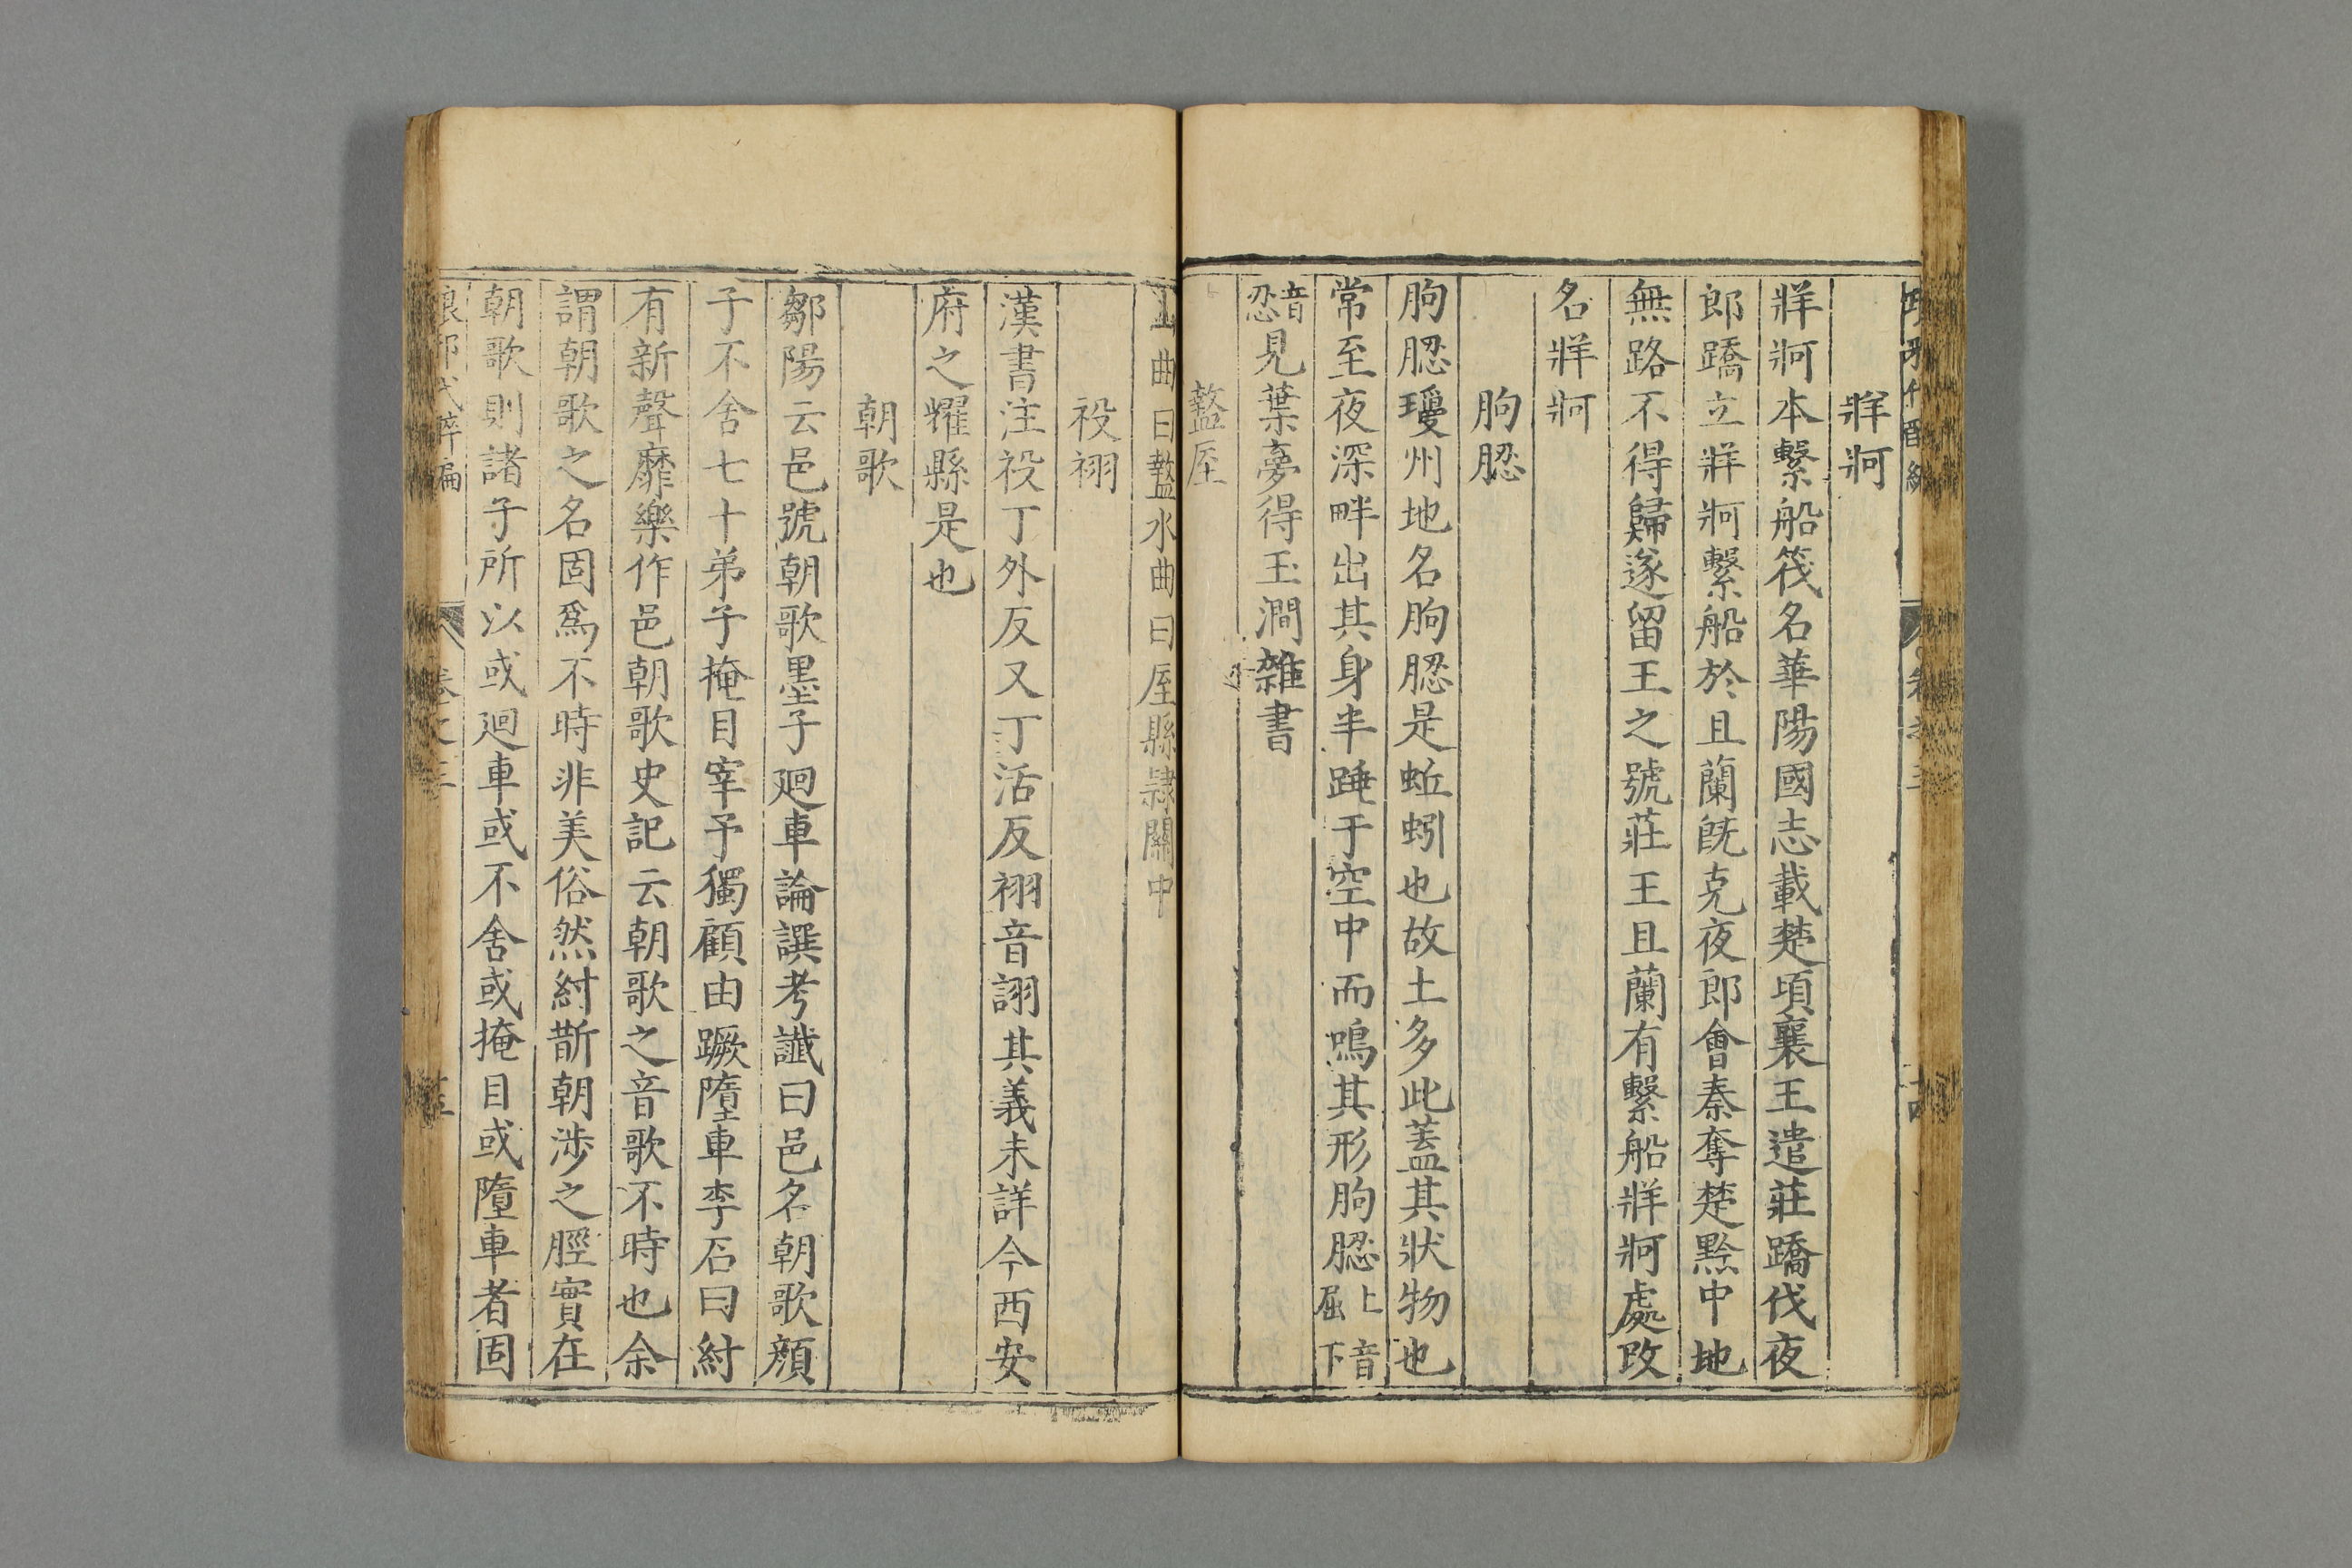 牂牁
牂牁本繫船筏名華陽國志載楚頃襄王遣莊蹻伐夜
郎蹻立牂牁繫船於且蘭旣克夜郎會秦奪楚黔中地
無路不得歸遂留王之號莊王且蘭有繫船牂牁處改
名牂牁
朐䏰
朐䏰瓊州地名朐䏰是蚯蚓也故土多此蓋其狀物也
常至夜深畔出其身半踵于空中而鳴其形朐䏰上音屈下
音忍見葉夢得玉澗雜書
盩厔
山曲曰盩水曲曰厔縣隸關中
祋祤
漢書注祋丁外反又丁活反祤音詡其義未詳今西安
府之耀縣是也
朝歌
鄒陽云邑號朝歌墨子廻車論譔考讖曰邑名朝歌顏
子不舍七十弟子掩目宰予獨顧由蹶墮車李石曰紂
有新聲靡樂作邑朝歌史記云朝歌之音歌不時也余
謂朝歌之名固爲不時非美俗然紂斮朝涉之脛實在
朝歌則諸子所以或廻車或不舍或掩目或墮車者固
卷之三